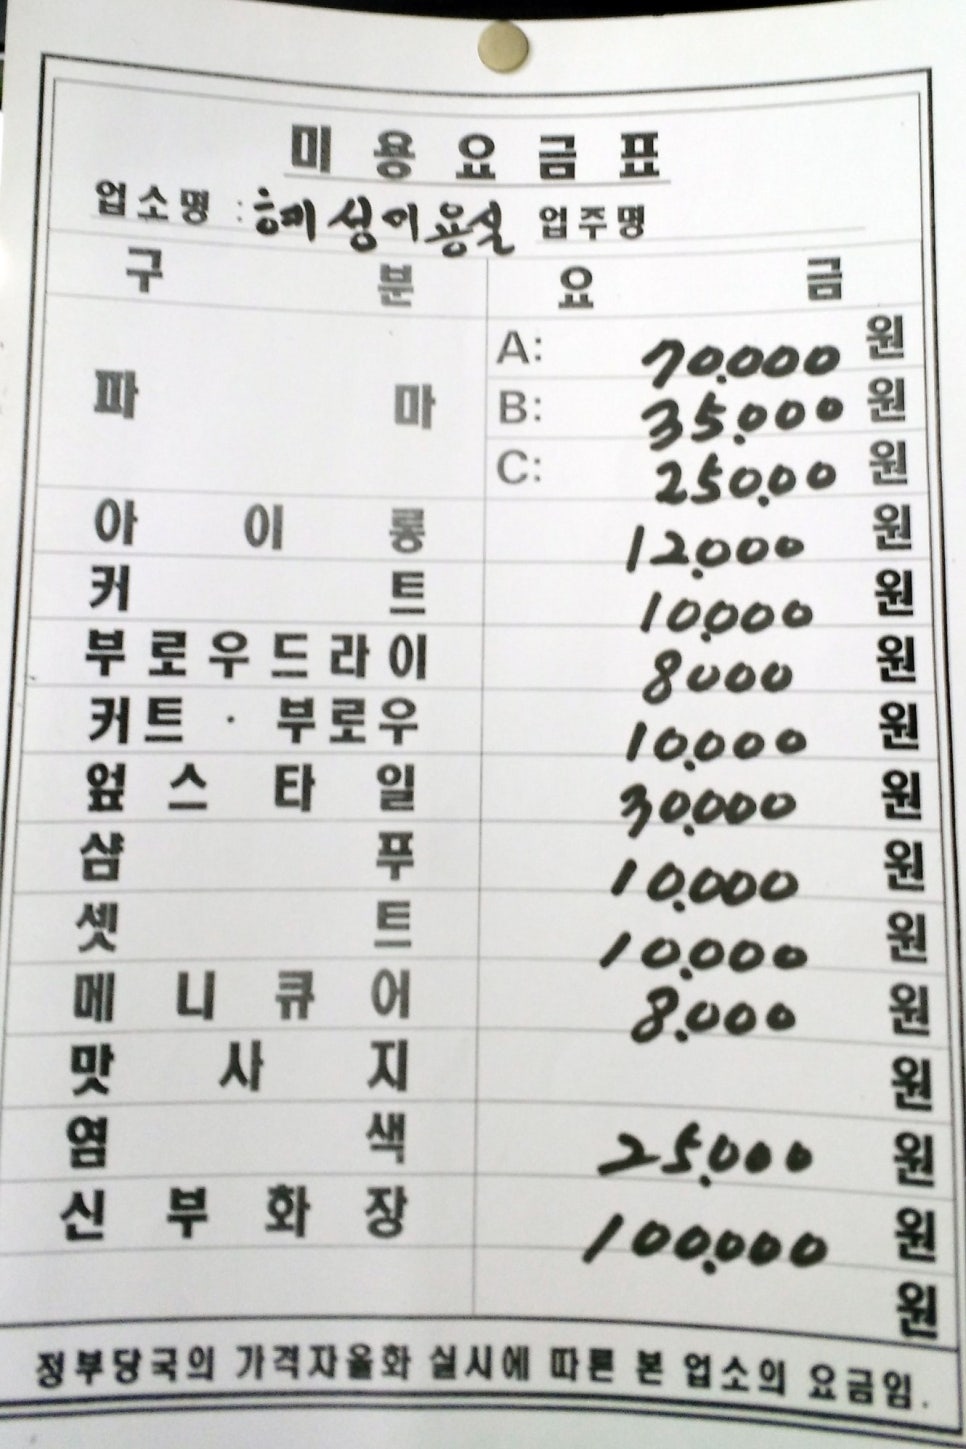 미용요금표
업소명 : 혜성미용실 업주명
구분 요금
파마 A: 70.000 원
B: 35.000 원
C: 250.00 원
아이롱 12.000 원
커트 10.000 원
부로우드라이 8000 원
커트 · 부로우 10.000 원
엎스타일 30.000 원
샴푸 10.000 원
셋트 10.000 원
메니큐어 8.000 원
맛사지 원
염색 25.000 원
신부화장 100.000 원
원
정부당국의 가격자율화 실시에 따른 본 업소의 요금임.